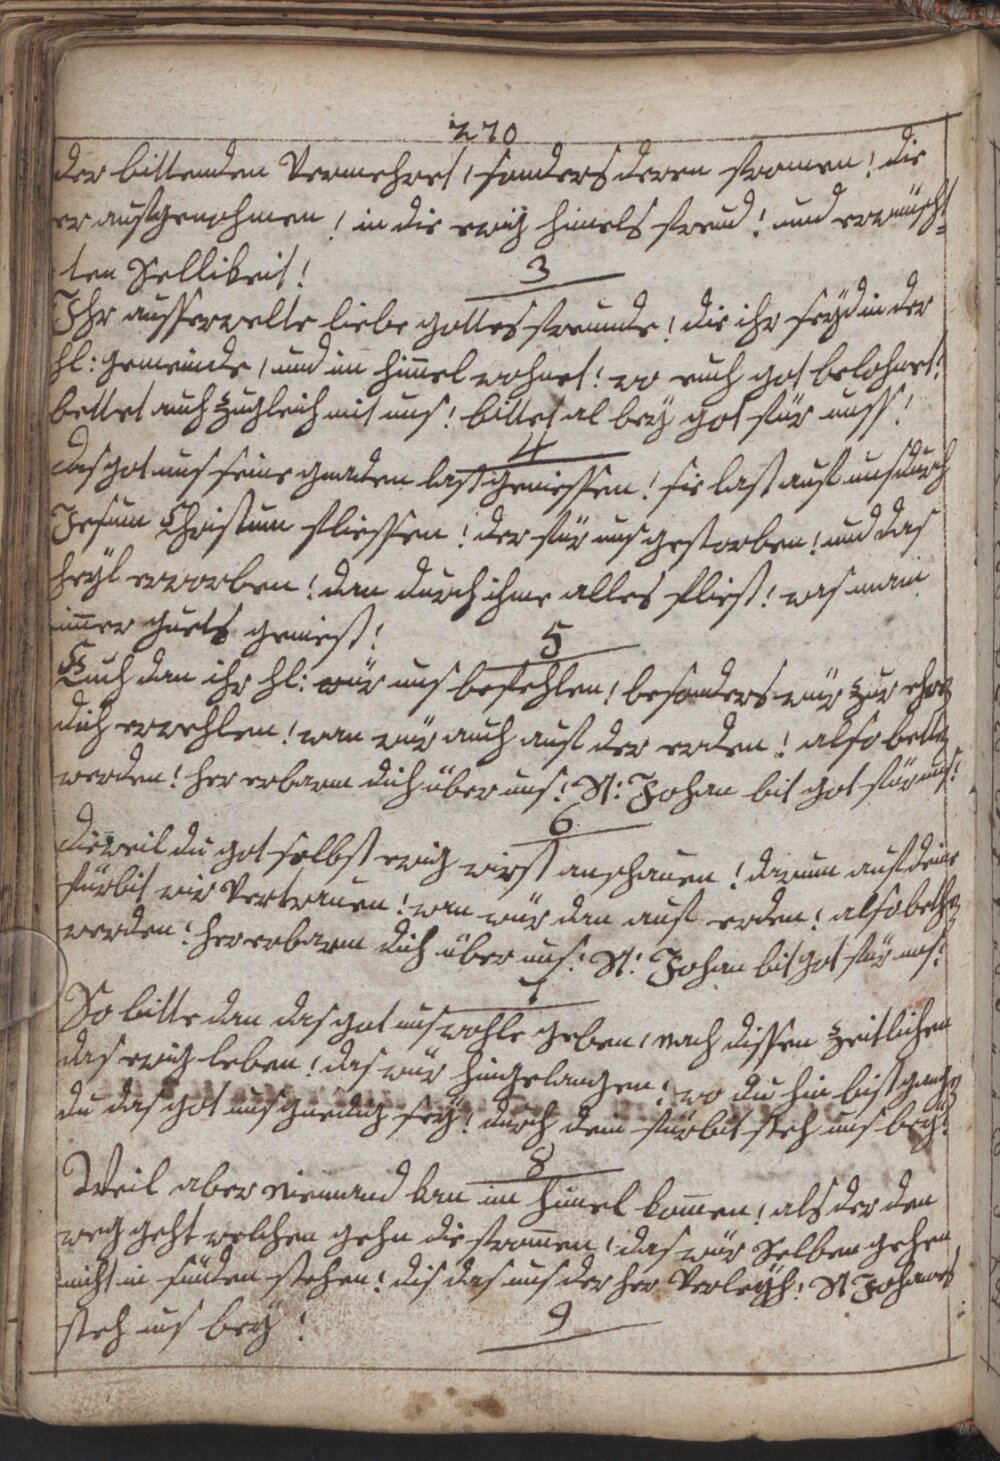 270
der bittenden Vermehret, sonders deren fromen! die
er aufgenohmen! in die ewig himels freud! und erwüsch=
ten Sellikeit!
3
Ihr ausserwelte liebe gottes freunde! die ihr seyd in der
hl: gemeinde, und im himel wohnet! wo euch got belohnet!
bettet auch zugleich mit uns! bittet al bey got für unss!
4
das got uns seine gnaden last geniessen! sie last auf uns durch
Jesum Christum fliessen! der für uns gestorben! und das
heyl erworben! dan durch ihme alles fliest! was man
imer guets geniest!
5
Euch dan ihr hl: wür uns befehlen! besonders wür zur ehre
dich erwehlen! wan wür auch auf der erden! also bette
werden! her erbarm dich über uns! St: Johan bit got für uns!
6
dieweil du got selbst ewig wirst anschauen! darum auf deine
fürbit wir Vertrauen! wan wür dan auf erden! also bethe
werden! her erbarm dich über uns! St: Johan bit got für uns!
7
So bitte dan das got uns wohle geben, nach dissen zeitlichen
das ewig leben! das wür hingelangen! wo du hin bist gange
du das got uns gnedig sey! durch dein fürbit steh uns bey!
8
Weil aber niemand kan im himel komen! als der den
weg geht welchen gehn die fromen! das wür Selben gehen
nicht in sünden stehen! dis das uns der her Verleyh! St Johanes
steh uns bey!
9